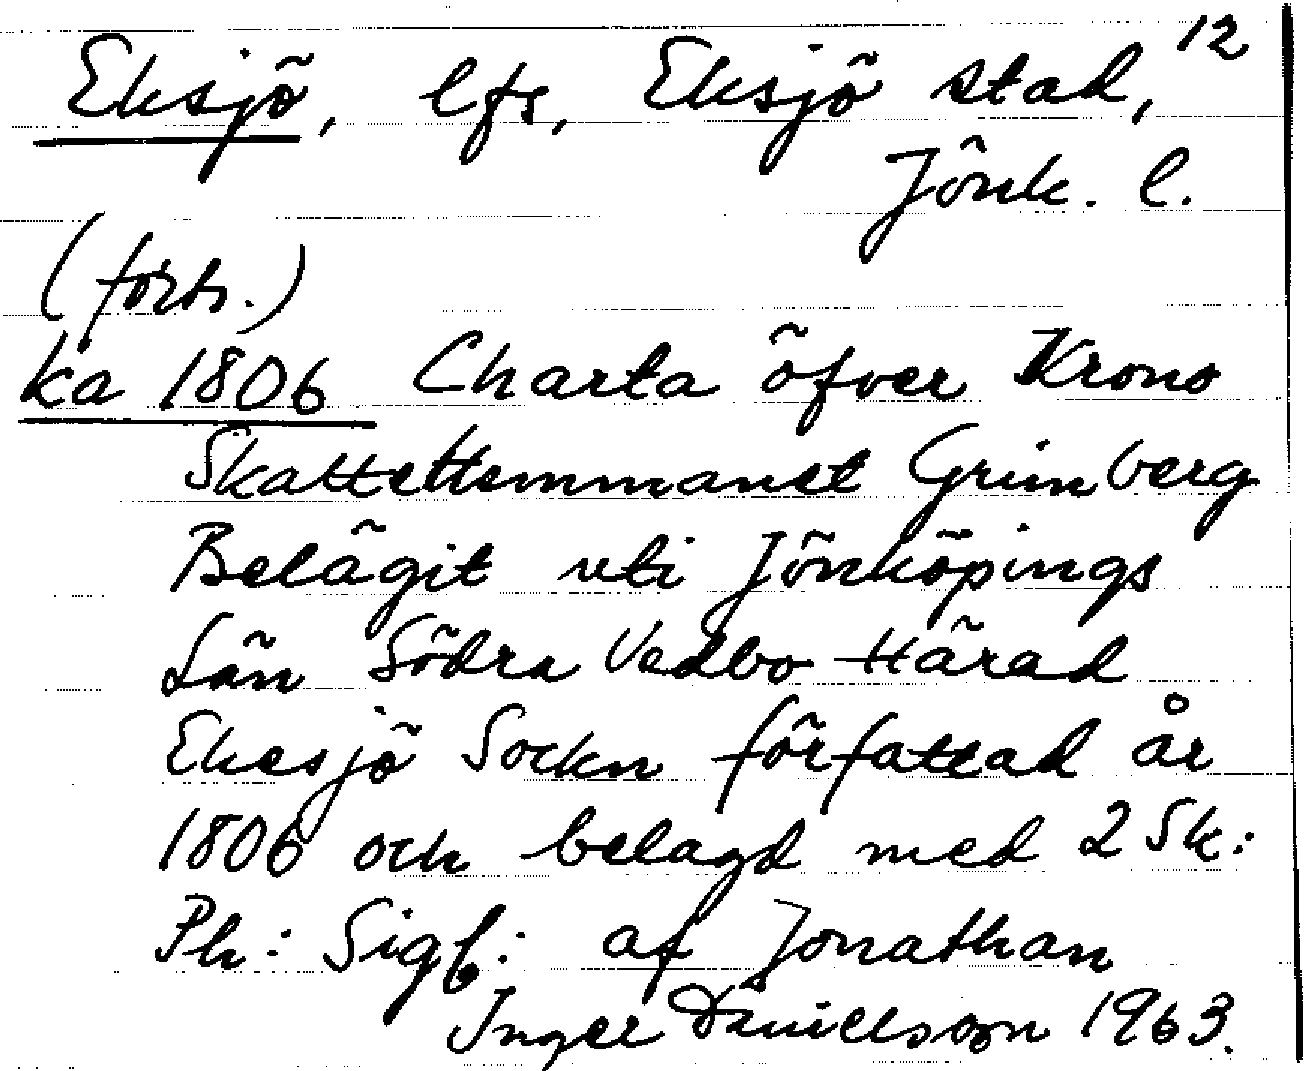 12
Eksjö, lfs, Eksjö stad,
Jönk. l.
(forts.)
ka 1806 Charta öfver Krono
SkatteHemmanet Grünberg
Belägit uti Jönköpings
Län Södra Vedbo Härad
Ekesjö Sockn författad år
1806 och belagd med 2 Sk:
Ph: Sigf: af Jonathan
Inger Danielsson 1963.